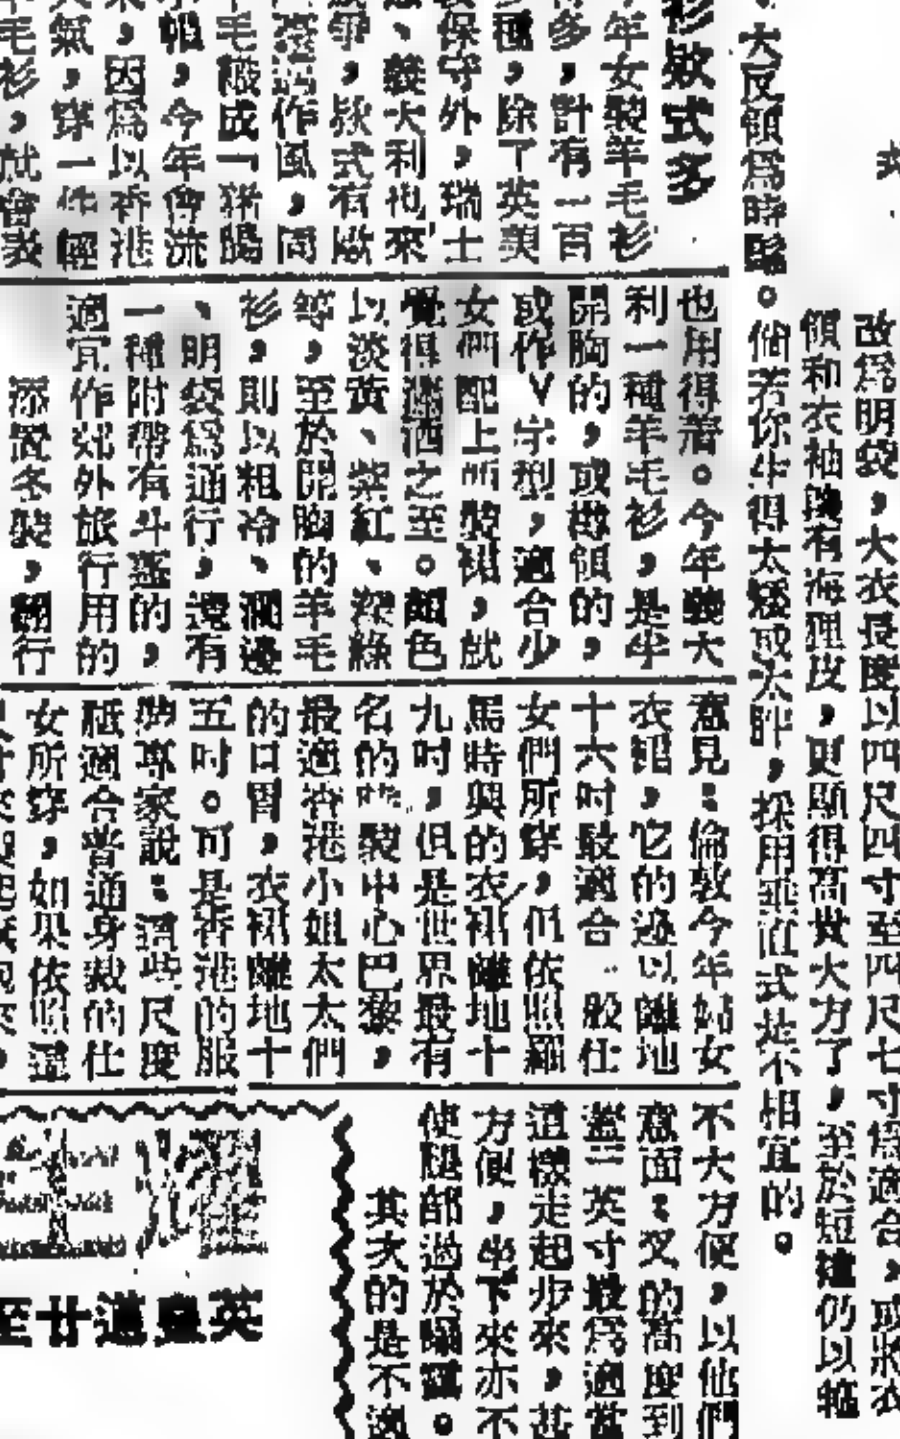 改為明袋，大衣長度以四尺四寸至四尺七寸為適合，或將衣
領和衣袖鑲有海狸皮，更顯得高貴大方了，至於短褸仍以
大反領為時髦。倘若你生得太矮或太胖，採用垂直式是不相宜的。
衫欵式多
年女裝羊毛衫
多，計有一百
種，除了英美
保守外，瑞士
、義大利也來
爭，欵式有
作風，同
毛織成
帽，今年會流
，因為以香港
氣，穿一件輕
毛衫，就會
也用得着。今年義大
利一種羊毛衫，是半
開胸的，或樽領的，
或作V字型，適合少
女們配上西裝裙，就
覺得瀟洒之至。顏色
以淡黃、紫紅、深綠
等，至於開胸的羊毛
衫，則以粗冷、濶邊
、明袋為通行，還有
一種附帶有斗篷的，
適宜作郊外旅行用的
添置冬裝，翻行
意見：倫敦今年婦女
衣裙，它的邊以離地
十六吋最適合一般仕
女們所穿，但依照羅
馬時興的衣裙離地十
九吋，但是世界最有
名的時裝中心巴黎，
最適香港小姐太太們
的口胃，衣裙離地十
五吋。可是香港的服
裝專家說：這些尺度
祗適合普通身裁的仕
女所穿，如果依照這
不大方便，以他們
意面：叉的高度到
蓋二英寸最為適當
這樣走起步來，甚
方便，坐下來亦不
使腿部過於曝露。
其次的是不適
英皇道廿至